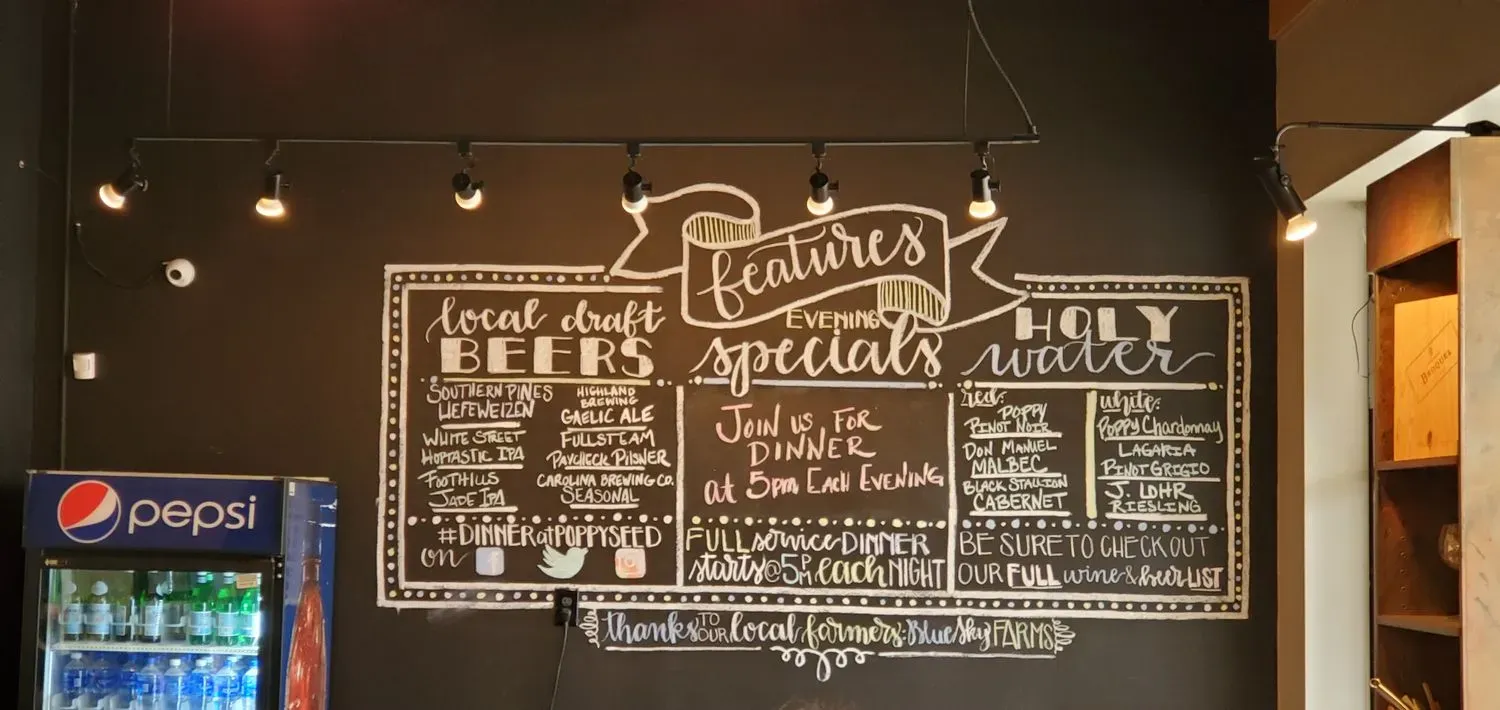 features
local draft
BEERS
SOUTHERN PINES
HEFEWEIZEN
WHITE STREET
HOPTASTIC IPA
FOOTHILLS
JADE IPA
HIGHLAND
BREWING
GAELIC ALE
FULLSTEAM
PAYCHECK PILSNER
CAROLINA BREWING CO.
SEASONAL
#DINNERatPOPPYSEED
on
EVENING
specials
JOIN US FOR
DINNER
at 5pm EACH EVENING
FULL service DINNER
starts @ 5PM each NIGHT
HOLY
water
red:
POPPY
PINOT NOIR
DON MANUEL
MALBEC
BLACK STALLION
CABERNET
white:
Poppy Chardonnay
LAGARIA
PINOT GRIGIO
J. LOHR
RIESLING
BE SURE TO CHECK OUT
OUR FULL wine & beer LIST
thanks TO OUR local farmers: Blue Sky FARMS
pepsi